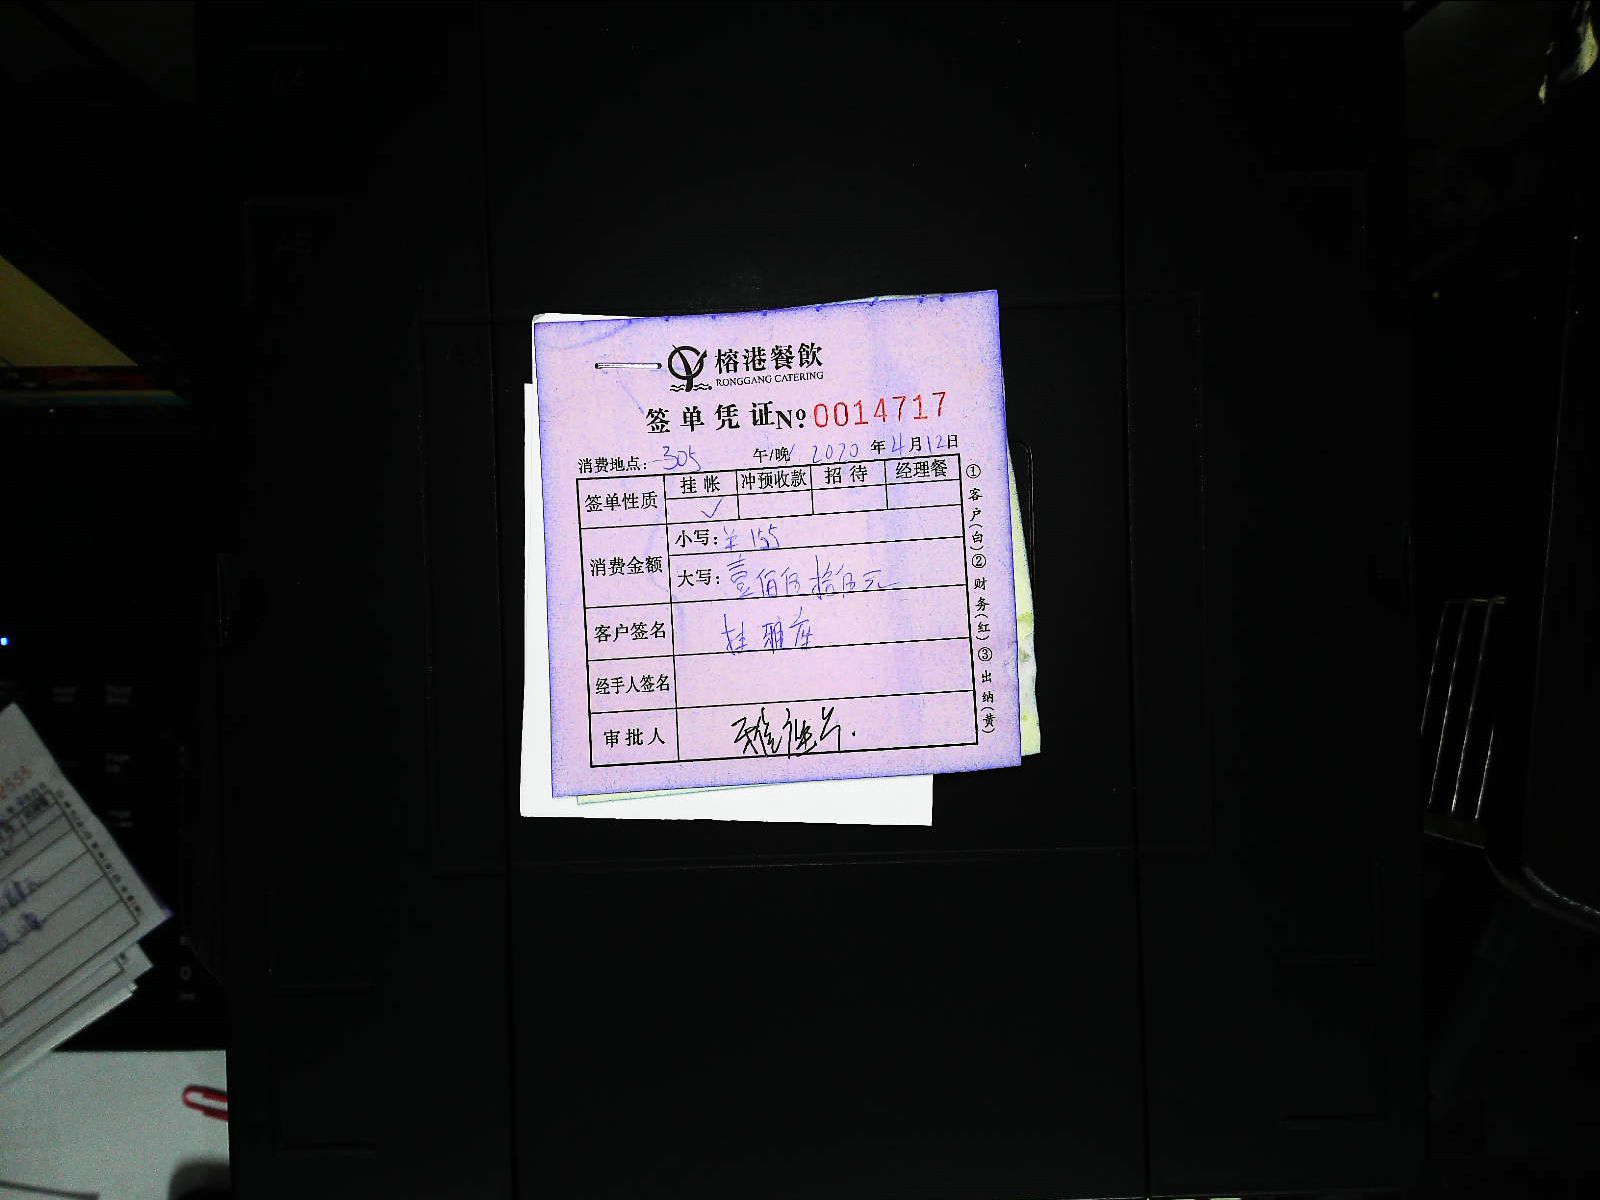 榕港餐飲
RONGGANG CATERING
签单凭证 №: 0014717
消费地点: 305 午/晚 2020 年 4 月 12 日
签单性质 挂帐 冲预收款 招待 经理餐
✓
消费金额 小写: ¥155
大写: 壹佰伍拾伍元
客户签名 挂雅座
经手人签名
审批人
①客户(白)②财务(红)③出纳(黄)